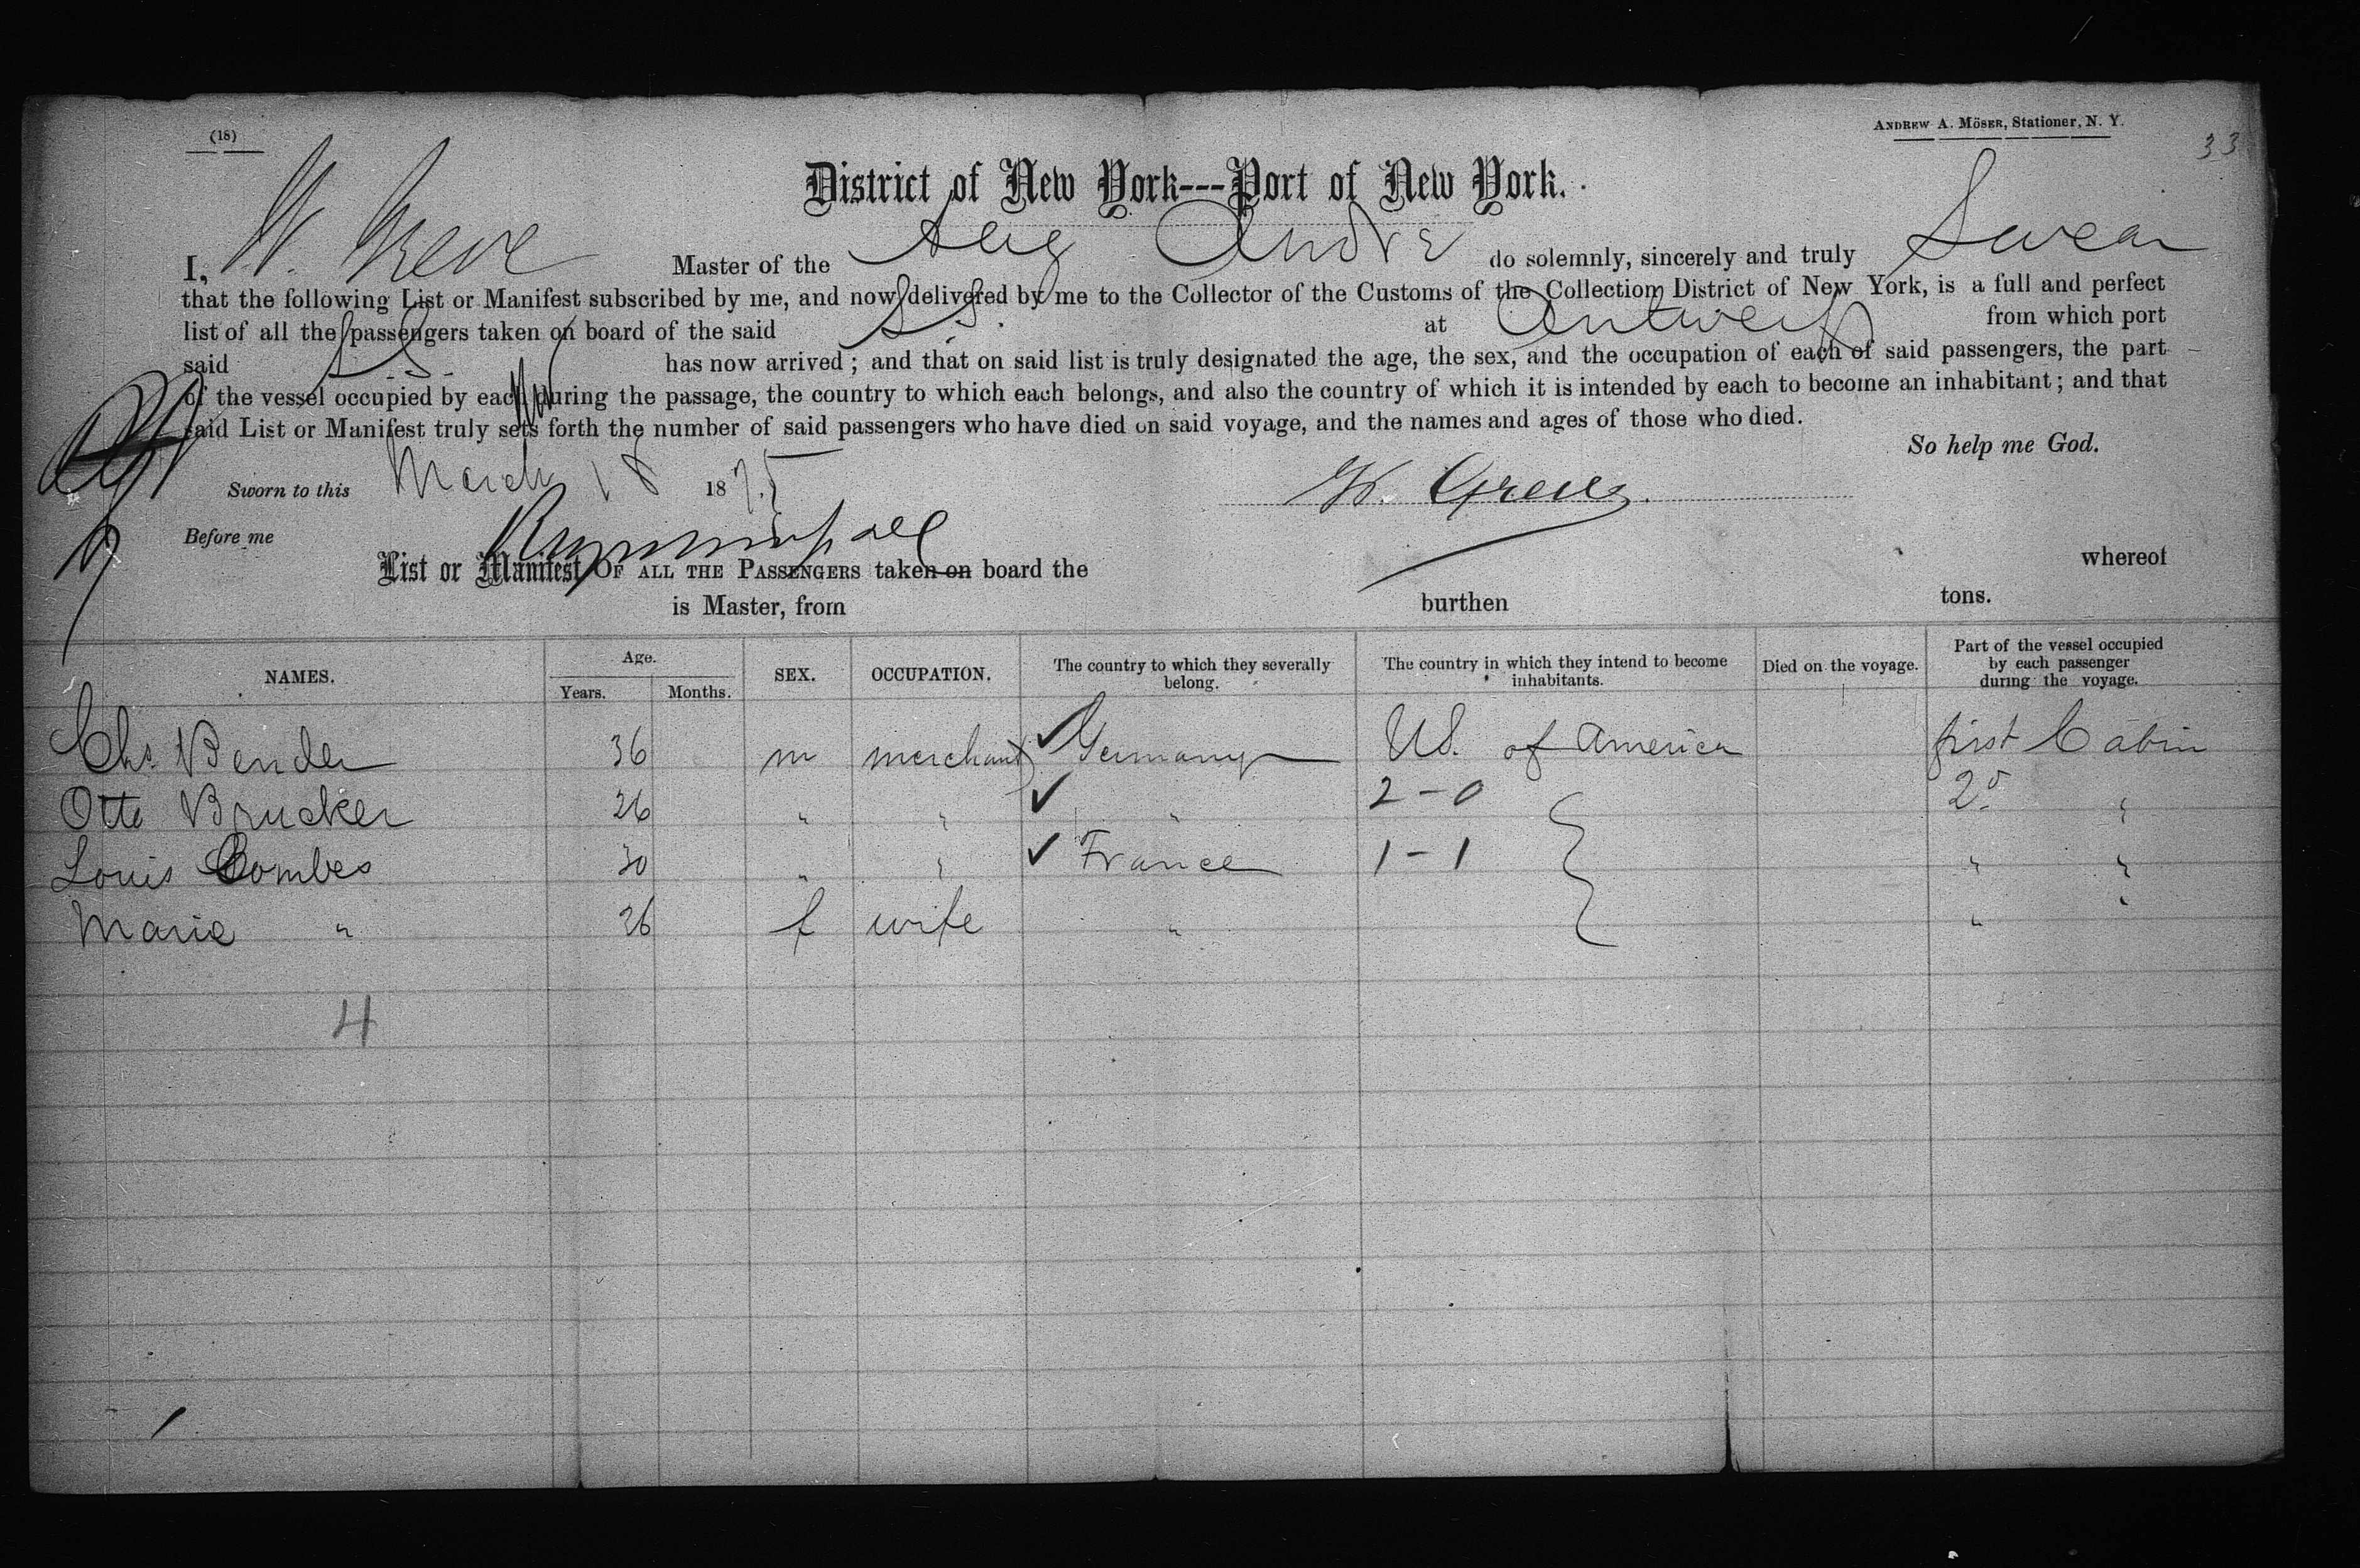 (18)
ANDREW A. MÖSER, Stationer, N. Y.
33
District of New York---Port of New York.
I, W. Greve Master of the Aug André do solemnly, sincerely and truly Swear
that the following List or Manifest subscribed by me, and now delivered by me to the Collector of the Customs of the Collection District of New York, is a full and perfect
list of all the passengers taken on board of the said SS. at Antwerp from which port
said S.S. has now arrived; and that on said list is truly designated the age, the sex, and the occupation of each of said passengers, the part
of the vessel occupied by each during the passage, the country to which each belongs, and also the country of which it is intended by each to become an inhabitant; and that
said List or Manifest truly sets forth the number of said passengers who have died on said voyage, and the names and ages of those who died.
So help me God.
Sworn to this March 18 1875
W. Greve.
Before me
List or Manifest OF ALL THE PASSENGERS taken on board the whereof
is Master, from burthen tons.
NAMES. Age. Years. Months. SEX. OCCUPATION. The country to which they severally belong. The country in which they intend to become inhabitants. Died on the voyage. Part of the vessel occupied by each passenger during the voyage.
Chs. Bender 36 m merchant Germany US. of America first Cabin
Otto Brucker 26 " " " 2-0 2d "
Louis Combes 30 " " France 1-1 " "
Marie " 26 f wife " " "
4